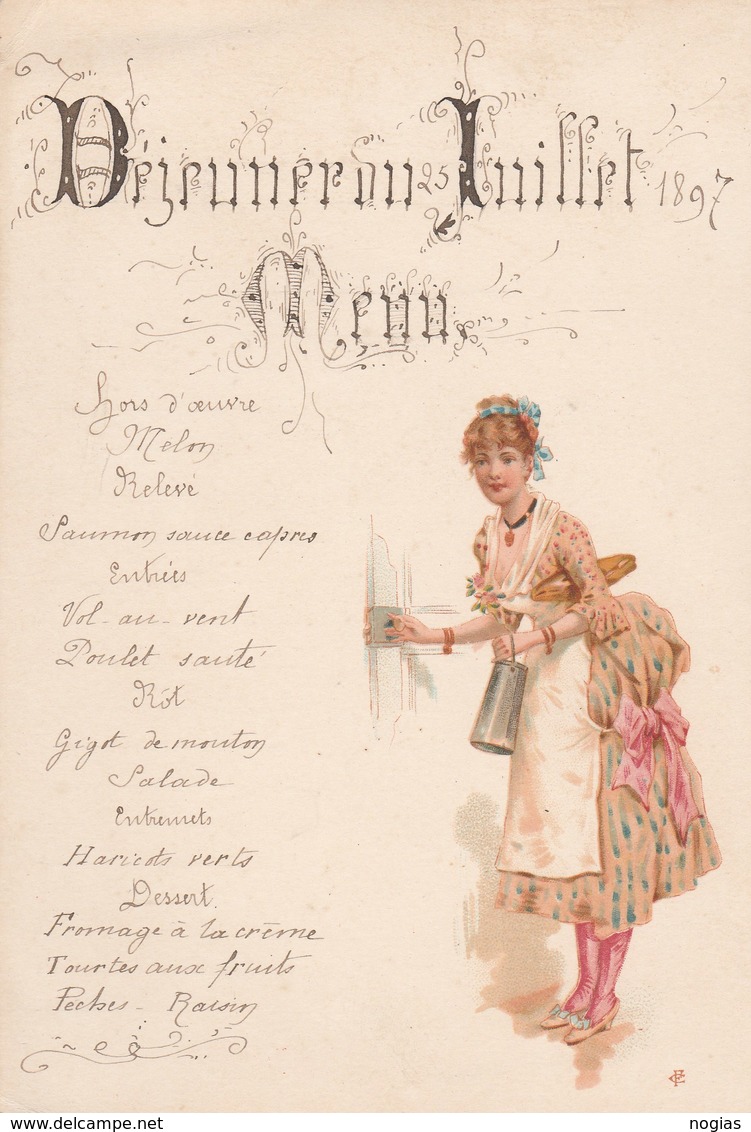 Déjeuner du 25 Juillet 1897
Menu.
Hors d'œuvre
Melon
Relevé
Saumon sauce capres
Entrées
Vol-au-vent
Poulet sauté
Rôt
Gigot de mouton
Salade
Entremets
Haricots verts
Dessert.
Fromage à la crême
Tourtes aux fruits
Pêches - Raisin
www.delcampe.net
nogias